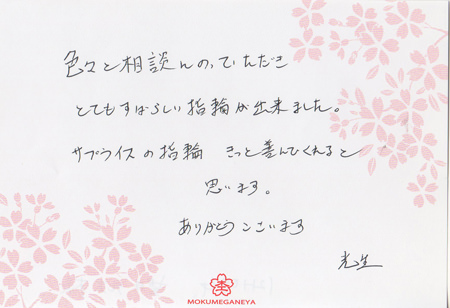 色々と相談んのっていただき
とてもすばらしい指輪が出来ました。
サプライズの指輪 きっと喜んでくれると
思います。
ありがとうございます
光生
MOKUMEGANEYA